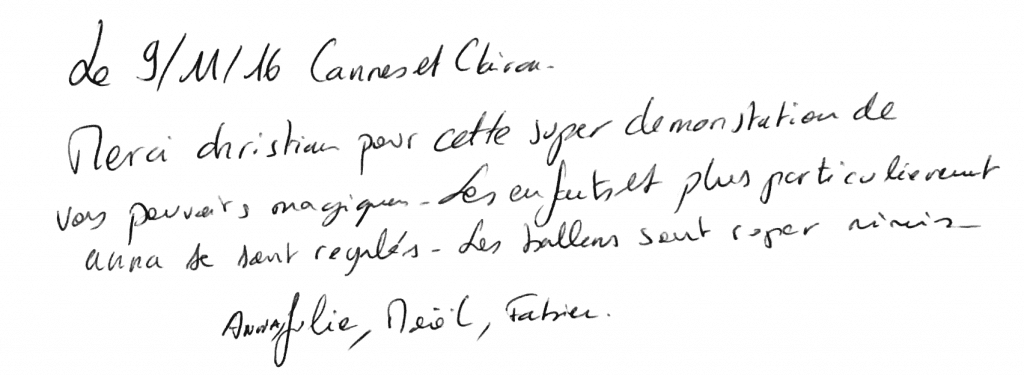 Le 9/11/16 Cannes et Clairan.
Merci christian pour cette super demonstation de
vos pouvoirs magiques - Les enfants et plus particulierement
anna se sont regalés - Les ballons sont super
Anna, Julie, Maël, Fabien.